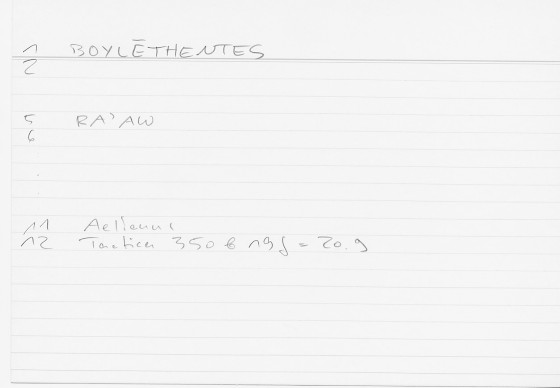 1 BOYLĒTHENTES
2
5 RA'AW
6
11 Aelianus
12 Tactica 350 b 19f = 20.9